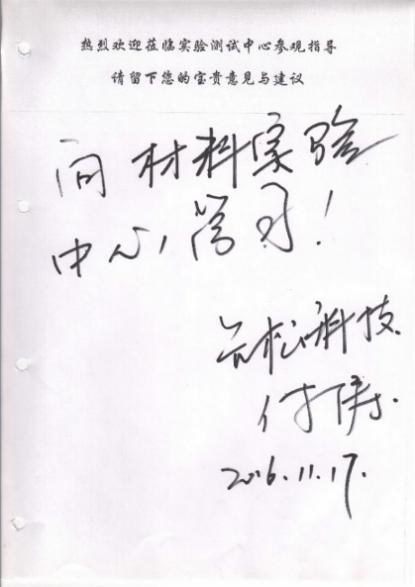 热烈欢迎莅临实验测试中心参观指导
请留下您的宝贵意见与建议
向材料实验
中心学习！
松科技
付
2016.11.17.